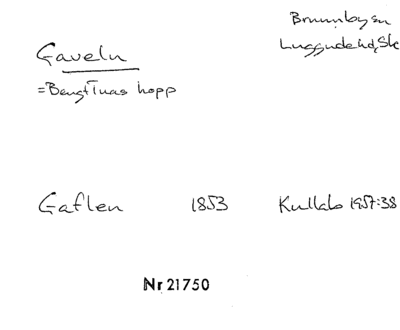 Brunnby sn
Luggude hd, Sk
Gaveln
=Bengt Tuas hopp
Gaflen 1853 Kullab 1957:38
Nr 21750